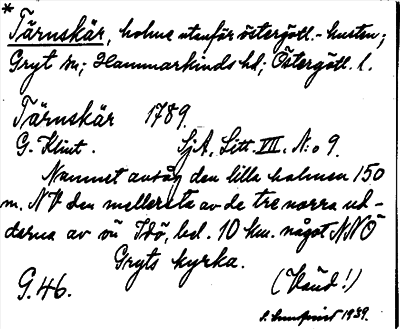 *
Tärnskär, holme utanför östergötl.-kusten;
Gryt sn; Hammarkinds hd; Östergötl. l.
Tärnskär 1789.
G. Klint. SjA. Litt. VII. N:o 9.
Namnet avsåg den lilla holmen 150
m. NV den mellersta av de tre norra ud-
darna av ön Idö, bel. 10 km. något NNÖ
Gryts kyrka.
G. 46. (Vänd!)
1939.